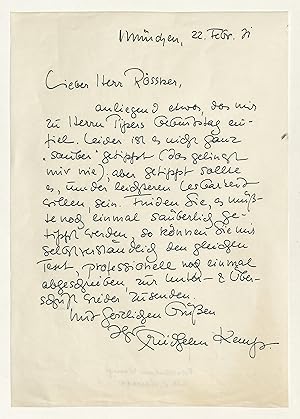 München, 22. Febr. 71
Lieber Herr Rössner,
anliegend etwas, das mir
zu Herrn Pipers Geburtstag ein-
fiel. Leider ist es nicht ganz
"sauber" getippt (das gelingt
mir nie); aber getippt sollte
es, um der leichteren Lesbarkeit
willen, sein. Finden Sie, es müß-
te noch einmal säuberlich ge-
tippt werden, so können Sie mir
selbstverständlich den gleichen
Text, professionell noch einmal
abgeschrieben, zur Unter- & Über-
schrift wieder zusenden.
Mit herzlichen Grüßen
Ihr Friedhelm Kemp